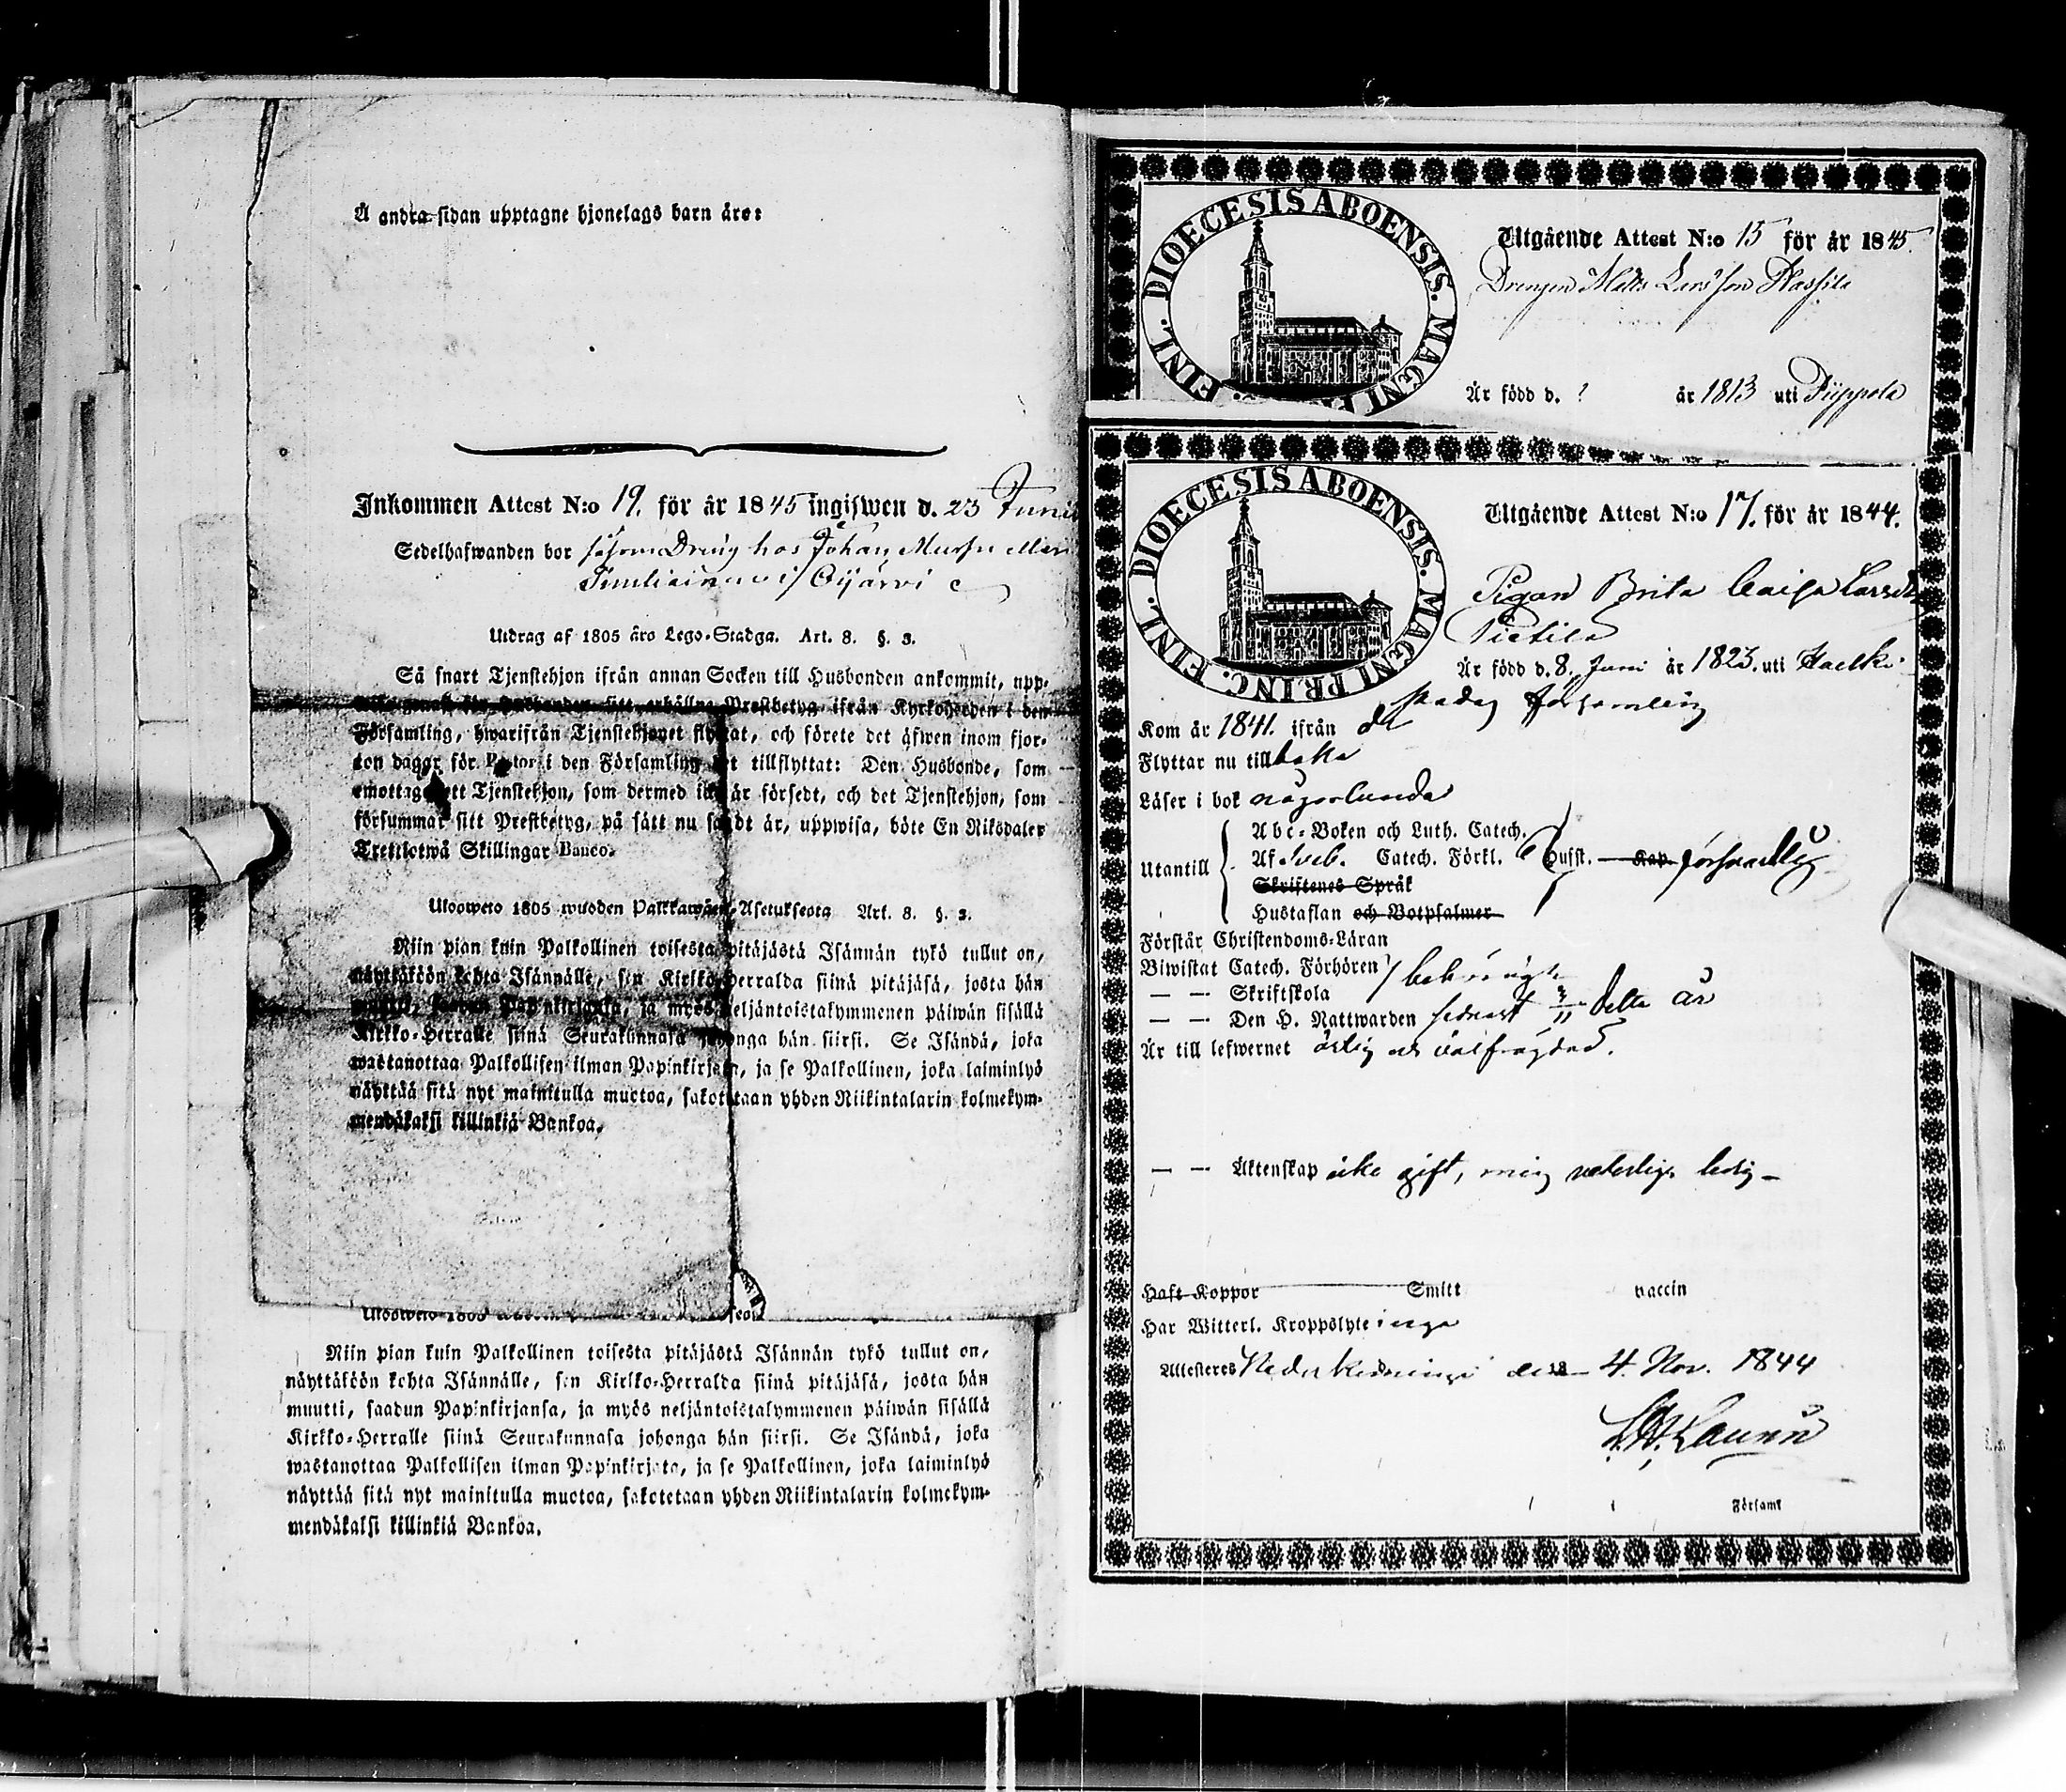 Å andra sidan upptagne hjonelags barn äro:
Inkommen Attest N:o 19. för år 1845 ingifwen d. 23 Juni
Sedelhafwanden bor såsom Dreng hos Johan
i Oijärvi
Utdrag af 1805 års Lego-Stadga. Art. 8. §. 3.
Så snart Tjenstehjon ifrån annan Socken till Husbonden ankommit, upp-
Prestbetyg ifrån Kyrkoherden i den
Församling, hwarifrån Tjenstehjonet flyttat, och förete det äfwen inom fjor-
ton dagar för Pastor i den Församling det tillflyttat: Den Husbonde, som
emottager ett Tjenstehjon, som dermed icke är försedt, och det Tjenstehjon, som
försummar sitt Prestbetyg, på sätt nu sagdt är, uppwisa, böte En Riksdaler
Trettiotwå Skillingar Banco.
Ulosweto 1805 wuoden Palkkawäen Asetuksesta Art. 8. §. 3.
Niin pian kuin Palkollinen toisesta pitäjästä Isännän tykö tullut on,
näyttäköön kohta Isännälle, sen Kirkko-Herralda siinä pitäjäsä, josta hän
muutti, saadun Papinkirjansa, ja myös neljäntoistakymmenen päiwän sisällä
Kirkko-Herralle siinä Seurakunnasa johonga hän siirsi. Se Isändä, joka
wastanottaa Palkollisen ilman Papinkirjata, ja se Palkollinen, joka laiminlyö
näyttää sitä nyt mainitulla muotoa, sakotetaan yhden Riikintalarin kolmekym-
mendäkaksi killinkiä Bankoa.
Ulosweto 1805
Niin pian kuin Palkollinen toisesta pitäjästä Isännän tykö tullut on,
näyttäköön kohta Isännälle, sen Kirkko-Herralda siinä pitäjäsä, josta hän
muutti, saadun Papinkirjansa, ja myös neljäntoistakymmenen päiwän sisällä
Kirkko-Herralle siinä Seurakunnasa johonga hän siirsi. Se Isändä, joka
wastanottaa Palkollisen ilman Papinkirjata, ja se Palkollinen, joka laiminlyö
näyttää sitä nyt mainitulla muotoa, sakotetaan yhden Riikintalarin kolmekym-
mendäkaksi killinkiä Bankoa.
DIOECESIS ABOENSIS. MAGNI FINL.
Utgående Attest N:o 15 för år 1845.
Drengen Matts Larsson Hassila
Är född d. ? år 1813 uti Piippola
DIOECESIS ABOENSIS. MAGNI PRINC. FINL.
Utgående Attest N:o 17. för år 1844.
Pigan Brita Caisa Larsdr
Pietilä
Är född d. 8. Juni år 1823. uti
församling
Kom år 1841. ifrån
Flyttar nu tillbaka
Läser i bok någorlunda
Utantill
Abc-Boken och Luth. Catech.
Af Sveb. Catech. Förkl. Hufst. Kap. försvarlig
Skriftenes Språk
Hustaflan och Botpsalmer
Förstår Christendoms-Läran
Biwistat Catech. Förhören
— — Skriftskola
— — Den H. Nattwarden sednast 3/11 detta år
Är till lefwernet ärlig och välfrägdad.
— — Äktenskap icke gift, mig veterligen ledig —
Haft Koppor Smitt vaccin
Har Witterl. Kroppslyte inga
Attesteras Neder den 4. Nov. 1844
Församl